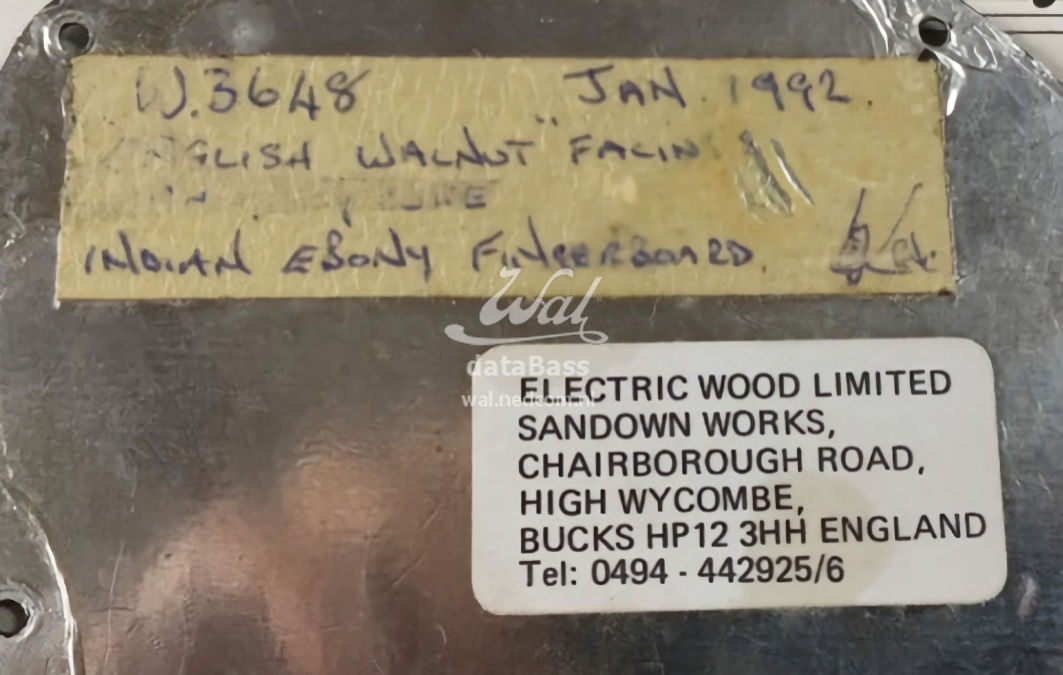 W.3648 JAN 1992.
ENGLISH WALNUT" FACIN
INDIAN EBONY FINGERBOARD.
Wal
dataBass
wal.nedcom.nl
ELECTRIC WOOD LIMITED
SANDOWN WORKS,
CHAIRBOROUGH ROAD,
HIGH WYCOMBE,
BUCKS HP12 3HH ENGLAND
Tel: 0494 - 442925/6